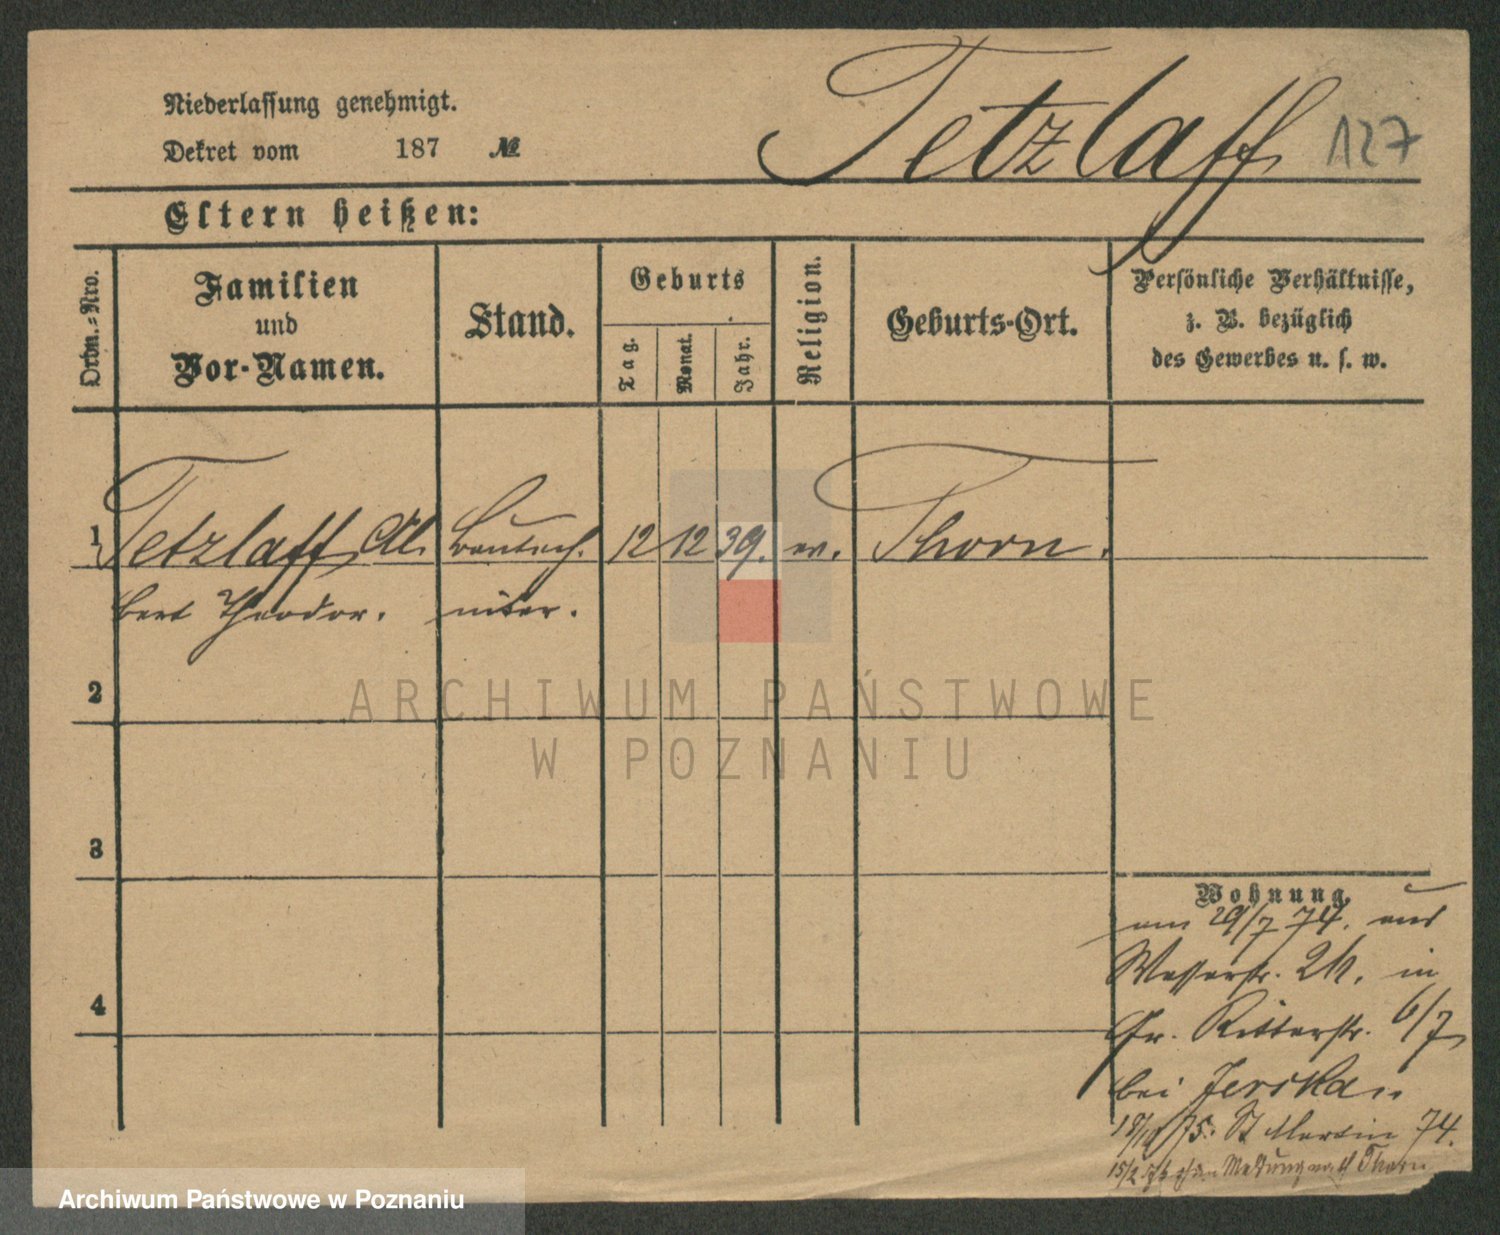 Tetzlaff 127
Niederlassung genehmigt.
Dekret vom 187 №
Eltern heißen:
Ordn.-Nro.
Familien
und
Vor-Namen.
Stand.
Geburts
Tag.
Monat.
Jahr.
Religion.
Geburts-Ort.
Persönliche Verhältnisse,
z. B. bezüglich
des Gewerbes u. s. w.
1 Tetzlaff, Al 12 12 39. ev. Thorn.
bert Theodor.
2
ARCHIWUM PAŃSTWOWE
W POZNANIU
3
4
Wohnung.
am 29/7 74. aus
Wasserstr. in
Gr. Ritterstr. 6/7
bei
75. St Martin 74.
15/2 Meldung nach Thorn
Archiwum Państwowe w Poznaniu